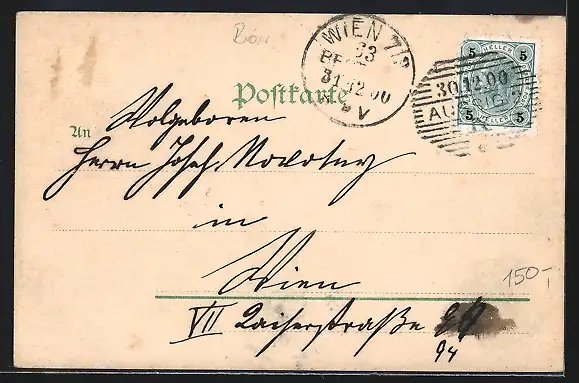 Böh
WIEN 7/3
63
31 12 00
V
5 HELLER 5
30.12.00
AUSSIG
5 5
Postkarte
An
Wolgeboren
Herrn Josef Novotny
in
Wien
150,-
VII Kaiserstraße
94